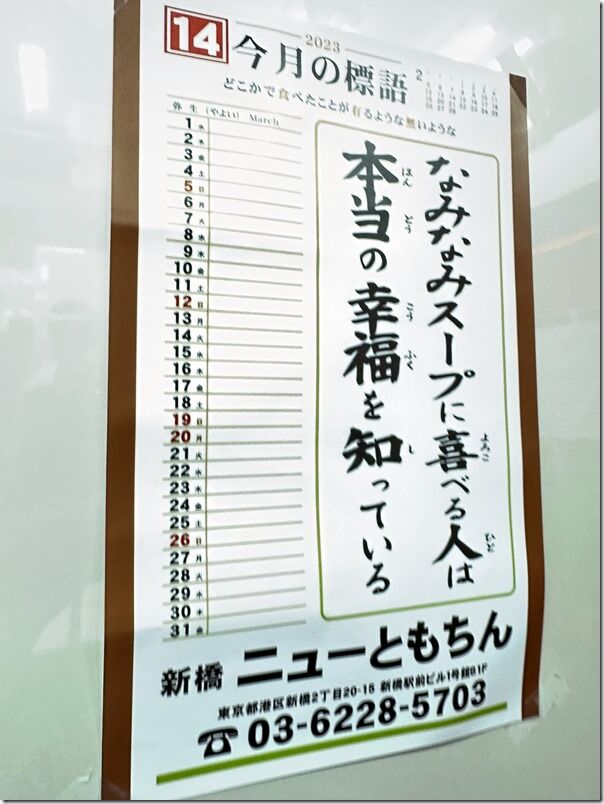 14
2023
今月の標語
2
どこかで食べたことが有るような無いような
弥生 (やよい) March
1 水
2 木
3 金
4 土
5 日
6 月
7 火
8 水
9 木
10 金
11 土
12 日
13 月
14 火
15 水
16 木
17 金
18 土
19 日
20 月
21 火
22 水
23 木
24 金
25 土
26 日
27 月
28 火
29 水
30 木
31 金
なみなみスープに喜べる人は
本当の幸福を知っている
ほん
こう ふく
し
新橋 ニューともちん
東京都港区新橋2丁目20-15 新橋駅前ビル1号館B1F
☎ 03-6228-5703